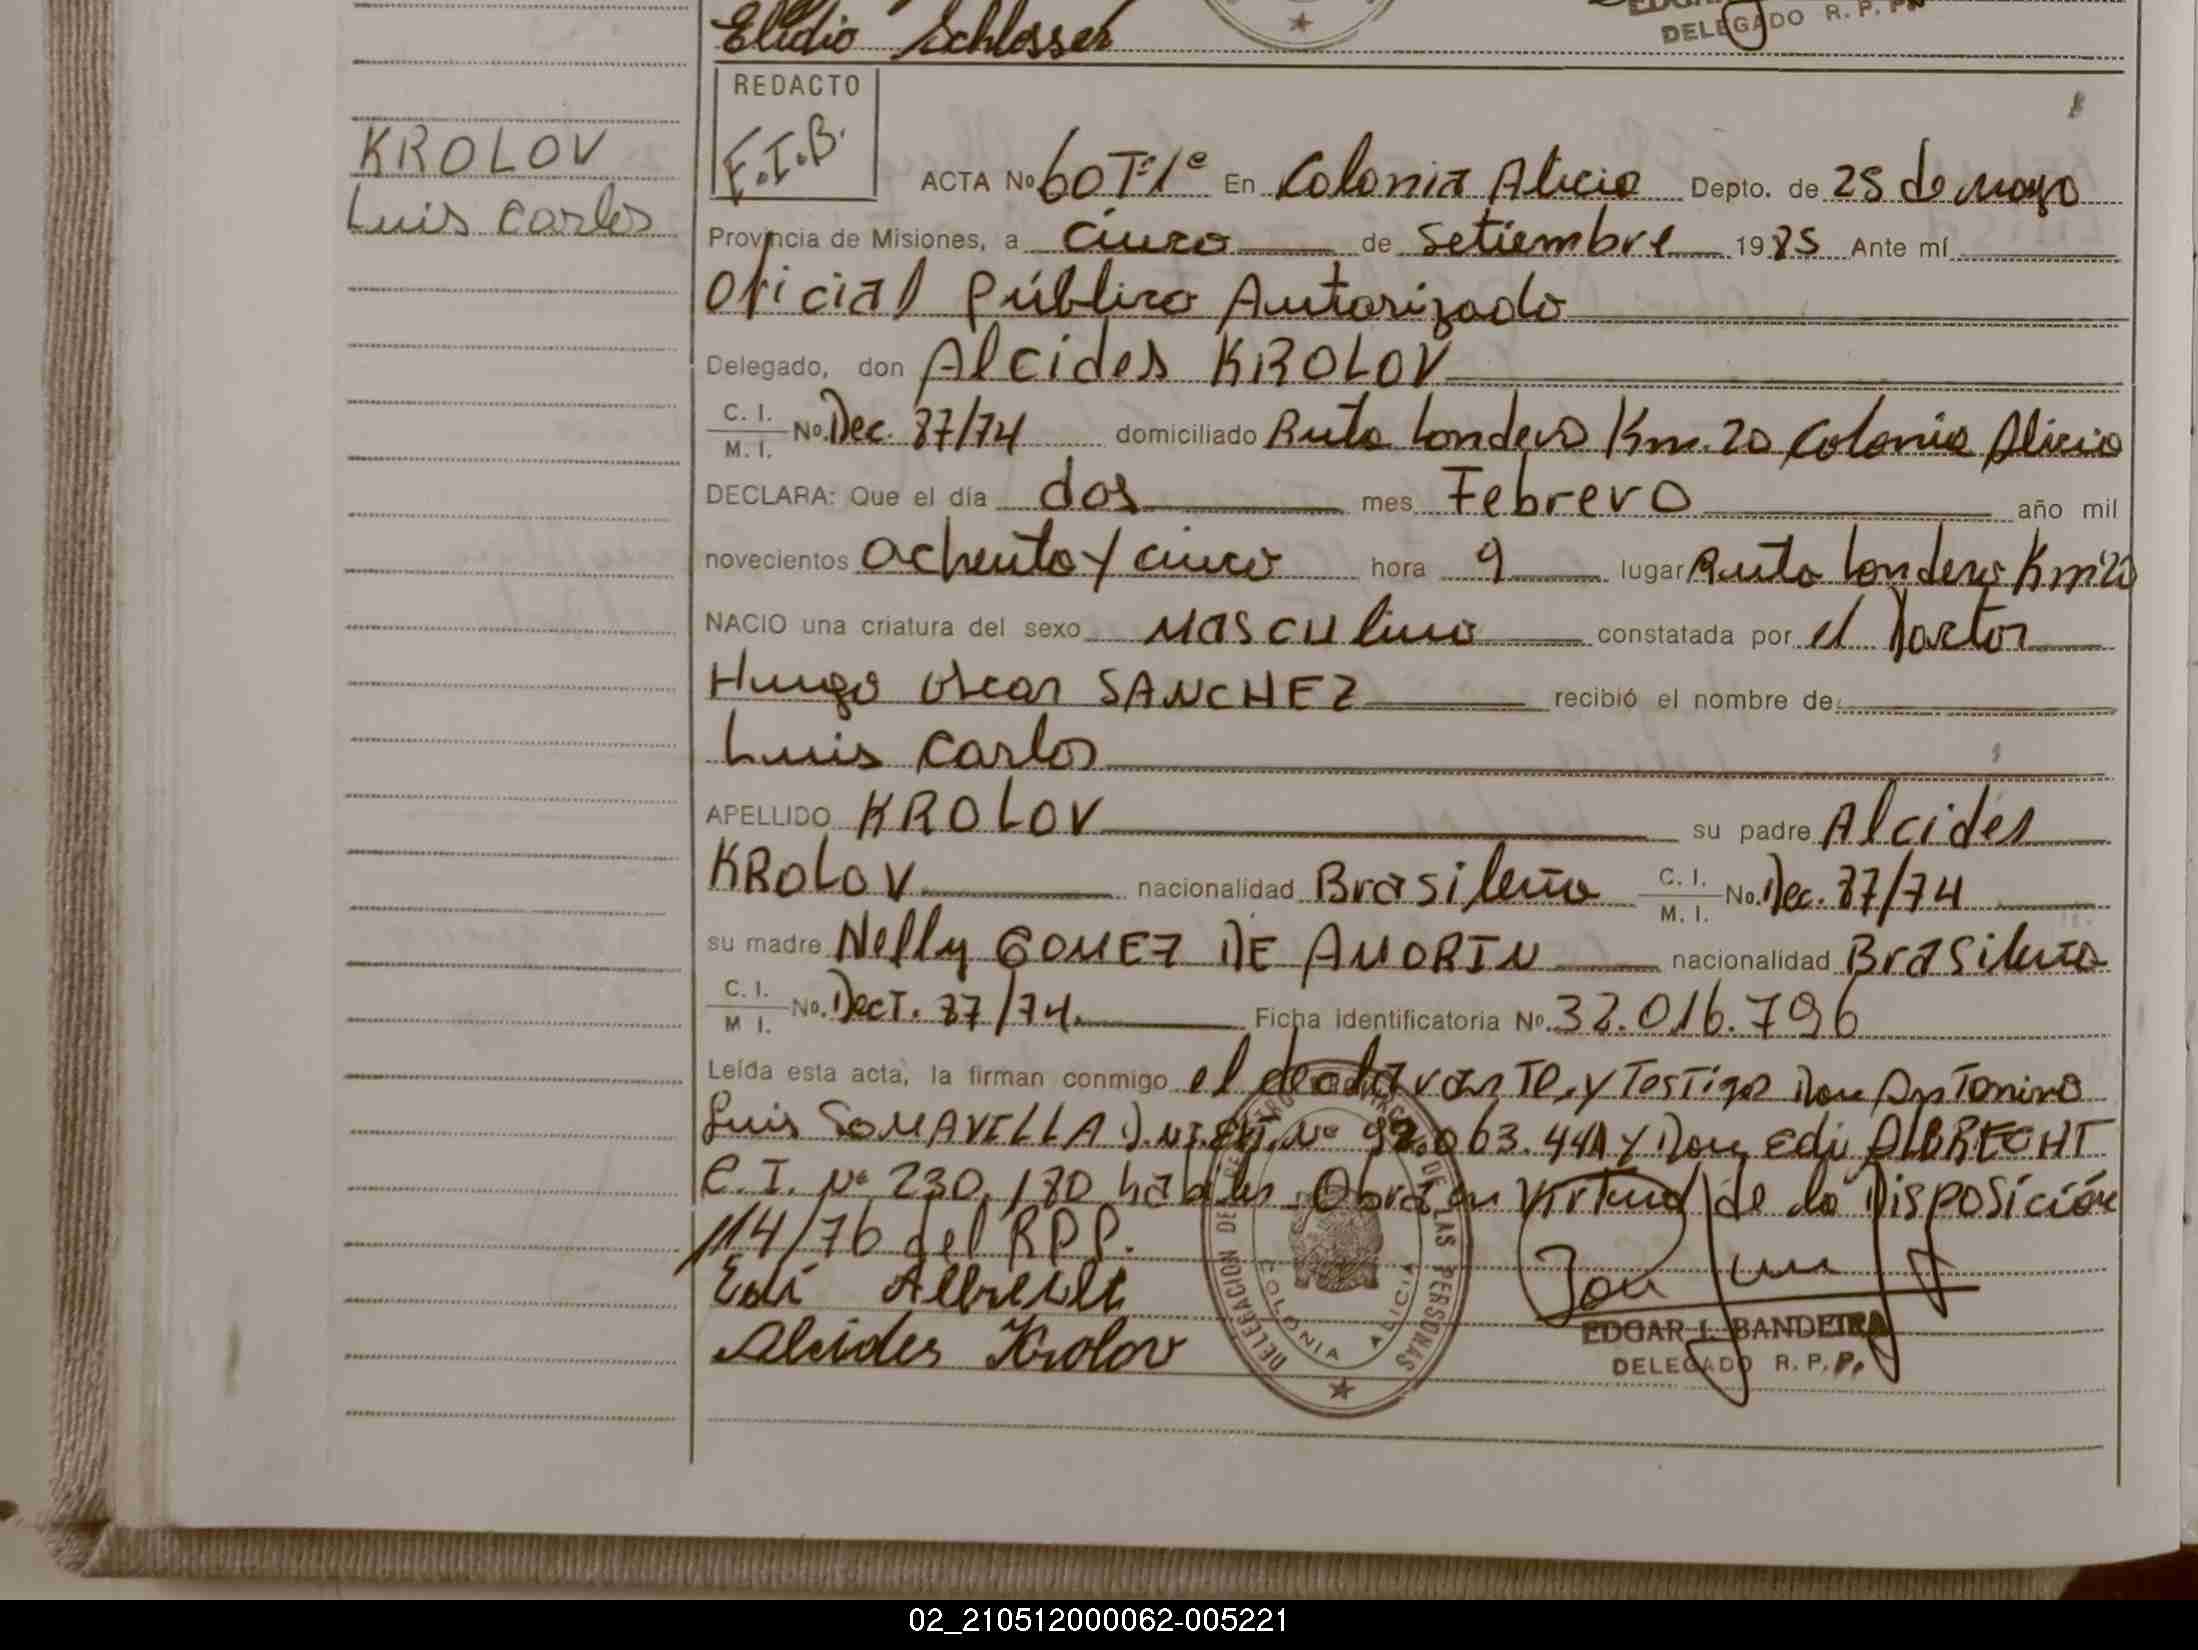 Elidio Schlosser
DELEGADO R. P. P.
REDACTO
F.I.B.
KROLOV
Luis Carlos
ACTA Nº 60 Tº 1º En Colonia Alicia Depto. de 25 de Mayo
Provincia de Misiones, a cinco de Setiembre 1985 Ante mí
Oficial Público Autorizado
Delegado, don Alcides KROLOV
C. I. / M. I. Nº. Dec. 87/74 domiciliado Ruta Londero Km. 20 Colonia Alicia
DECLARA: Que el día dos mes Febrero año mil
novecientos ochenta y cinco hora 9 lugar Ruta Londero Km 20
NACIO una criatura del sexo Masculino constatada por el Doctor
Hugo Oscar SANCHEZ recibió el nombre de
Luis Carlos
APELLIDO KROLOV su padre Alcides
KROLOV nacionalidad Brasileña C. I. / M. I. No. Dec. 87/74
su madre Nelly GOMEZ DE AMORIN nacionalidad Brasileña
C. I. / M I. No. DecT. 87/74. Ficha identificatoria Nº 32.016.796
Leída esta acta, la firman conmigo el declarante, y Testigos Don Antonino
Luis SOMAVILLA D.N.I. Nº 92.063.441 y Don Edi ALBRECHT
C.I. Nº 230.180 habiles. Obra en Virtud de la Disposición
114/76 del RPP.
Edi Albrecht
Alcides Krolov
DELEGACION DE REGISTRO PROVINCIAL DE LAS PERSONAS
COLONIA ALICIA
EDGAR I. BANDEIRA
DELEGADO R. P. P.
02_210512000062-005221